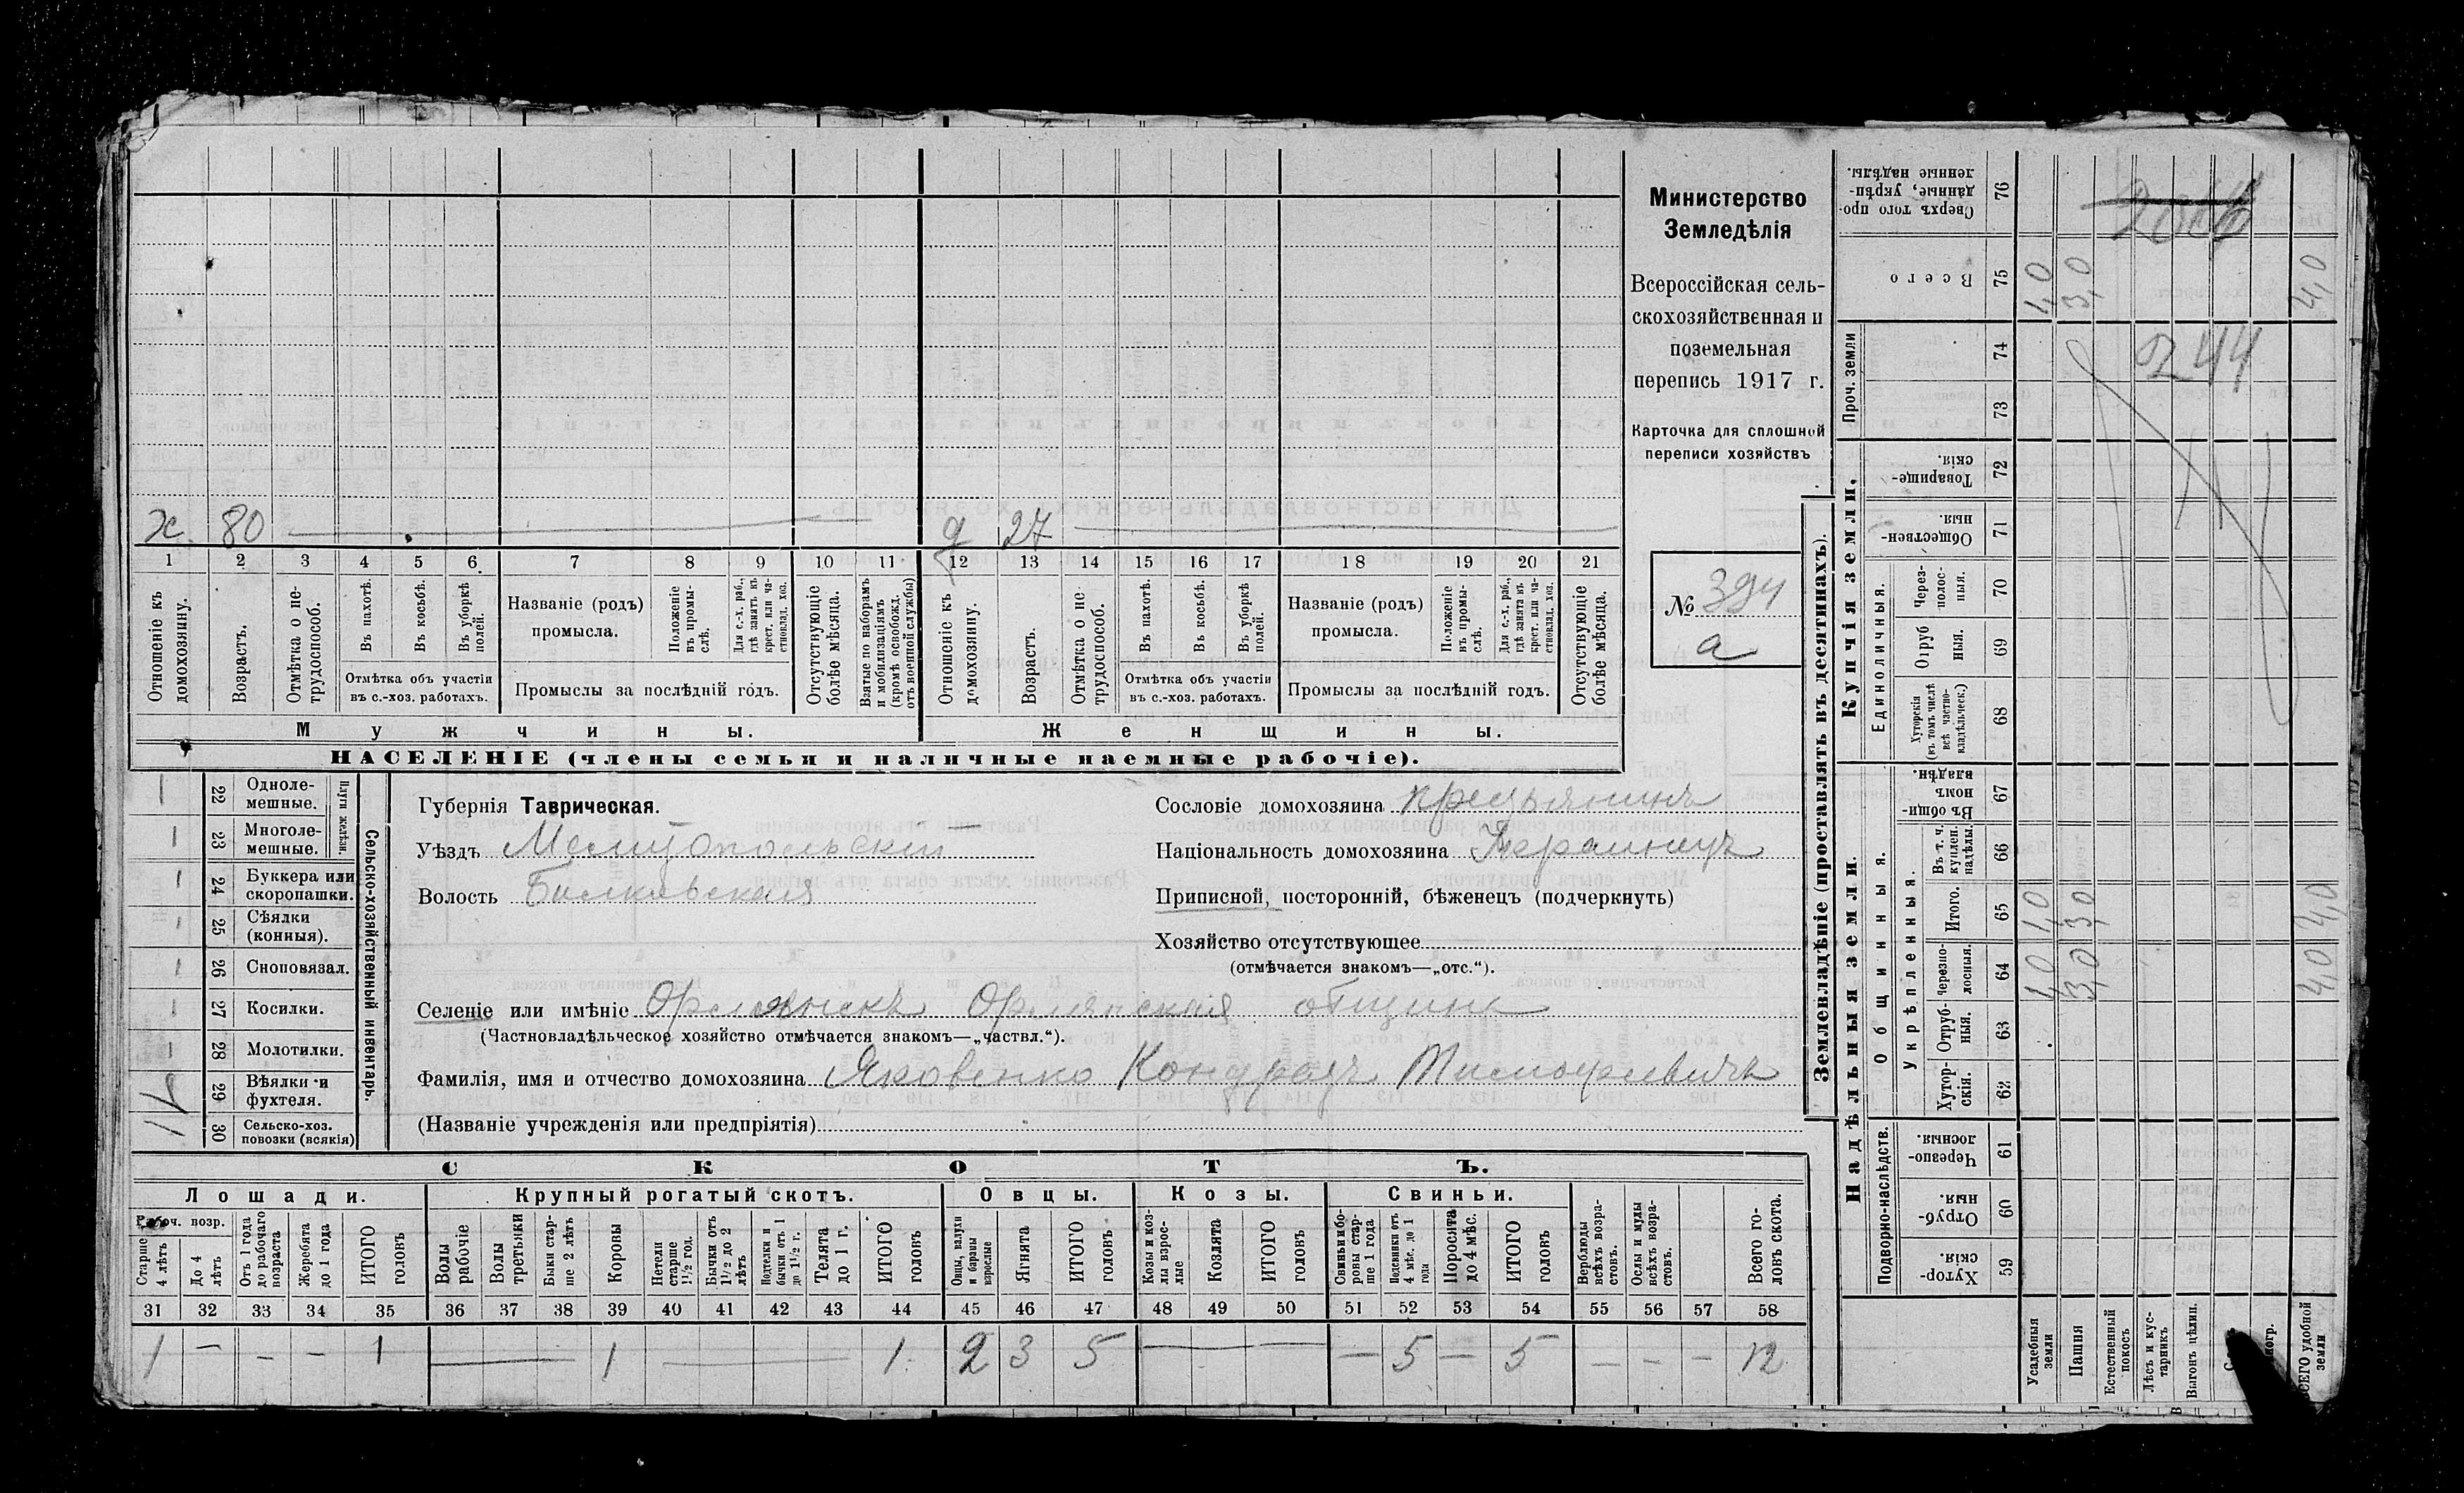 х. 80 — g 27 —
1 2 3 4 5 6 7 8 9 10 11 12 13 14 15 16 17 18 19 20 21
Отношеніе къ домохозяину.
Возрастъ.
Отмѣтка о нетрудоспособ.
Въ пахотѣ.
Въ косьбѣ.
Въ уборкѣ полей.
Отмѣтка объ участіи въ с.-хоз. работахъ.
Названіе (родъ) промысла.
Положеніе въ промыслѣ.
Для с.-х. раб., гдѣ занятъ въ крест. или частновлад. хоз.
Промыслы за послѣдній годъ.
Отсутствующіе болѣе мѣсяца.
Взятые по наборамъ и мобилизаціямъ (кромѣ освобожд. отъ военной службы)
Отношеніе къ домохозяину.
Возрастъ.
Отмѣтка о нетрудоспособ.
Въ пахотѣ.
Въ косьбѣ.
Въ уборкѣ полей.
Отмѣтка объ участіи въ с.-хоз. работахъ.
Названіе (родъ) промысла.
Положеніе въ промыслѣ.
Для с.-х. раб., гдѣ занята въ крест. или частновлад. хоз.
Промыслы за послѣдній годъ.
Отсутствующіе болѣе мѣсяца.
Мужчины. Женщины.
НАСЕЛЕНІЕ (члены семьи и наличные наемные рабочіе).
Министерство
Земледѣлія
Всероссійская сель-
скохозяйственная и
поземельная
перепись 1917 г.
Карточка для сплошной
переписи хозяйствъ
№ 394
а
22 Одноле-мешные.
23 Многоле-мешные.
Плуги желѣзн.
24 Буккера или скоропашки.
25 Сѣялки (конныя).
26 Сноповязал.
27 Косилки.
28 Молотилки.
29 Вѣялки и фухтеля.
30 Сельско-хоз. повозки (всякія)
Сельско-хозяйственный инвентарь.
Губернія Таврическая.
Уѣздъ Мелитопольскій
Волость
Сословіе домохозяина крестьянинъ
Національность домохозяина Украинецъ
Приписной, посторонній, бѣженецъ (подчеркнуть)
Хозяйство отсутствующее
(отмѣчается знакомъ—„отс.“).
Селеніе или имѣніе Орлянскъ Орлянская община
(Частновладѣльческое хозяйство отмѣчается знакомъ—„частвл.“).
Фамилія, имя и отчество домохозяина Яковенко Кондратъ
(Названіе учрежденія или предпріятія)
СКОТЪ.
Лошади. Крупный рогатый скотъ. Овцы. Козы. Свиньи.
Рабоч. возр.
Старше 4 лѣтъ
До 4 лѣтъ
Отъ 1 года до рабочаго возраста
Жеребята до 1 года
ИТОГО головъ
Волы рабочіе
Волы третьяки
Быки старше 2 лѣтъ
Коровы
Нетели старше 1½ год.
Бычки отъ 1½ до 2 лѣтъ
Подтелки и бычки отъ 1 до 1½ г.
Телята до 1 г.
ИТОГО головъ
Овцы, валухи и бараны взрослые
Ягнята
ИТОГО головъ
Козы и козлы взрослые
Козлята
ИТОГО головъ
Свиньи и боровы старше 1 года
Подсвинки отъ 4 мѣс. до 1 года
Поросята до 4 мѣс.
ИТОГО головъ
Верблюды всѣхъ возрастовъ.
Ослы и мулы всѣхъ возрастовъ.
Всего головъ скота.
31 32 33 34 35 36 37 38 39 40 41 42 43 44 45 46 47 48 49 50 51 52 53 54 55 56 57 58
1 — — — 1 — 1 — — 1 2 3 5 — — — 5 — 5 — — — 12
Землевладѣніе (проставлять въ десятинахъ).
Купчія земли.
Надѣльныя земли.
76 Сверхъ того проданные, укрѣпленные надѣлы.
75 Всего 1,0 3,0 4,0
Проч. земли
74
73
72 Товарищескія.
71 Общественныя.
Единоличныя.
70 Черезполосныя.
69 Отрубныя.
68 Хуторскія (въ томъ числѣ всѣ частновладѣльческ.)
67 Въ общин. владѣн.
Общинныя.
Укрѣпленныя.
66 Въ т. ч. куплен. надѣлы.
65 Итого. 1,0 3,0 4,0
64 Черезполосныя. 1,0 3,0 4,0
63 Отрубныя.
62 Хуторскія.
Подворно-наслѣдств.
61 Черезполосныя.
60 Отрубныя.
59 Хуторскія.
244
Усадебныя земли
Пашня
Естественный покосъ
Лѣсъ и кустарникъ
Выгонъ цѣлин.
ВСЕГО удобной земли